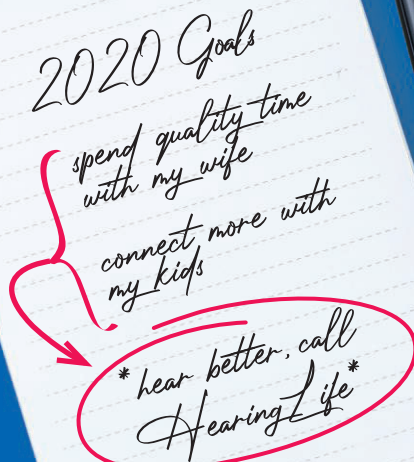 2020 Goals
spend quality time
with my wife
connect more with
my kids
*hear better, call
HearingLife*